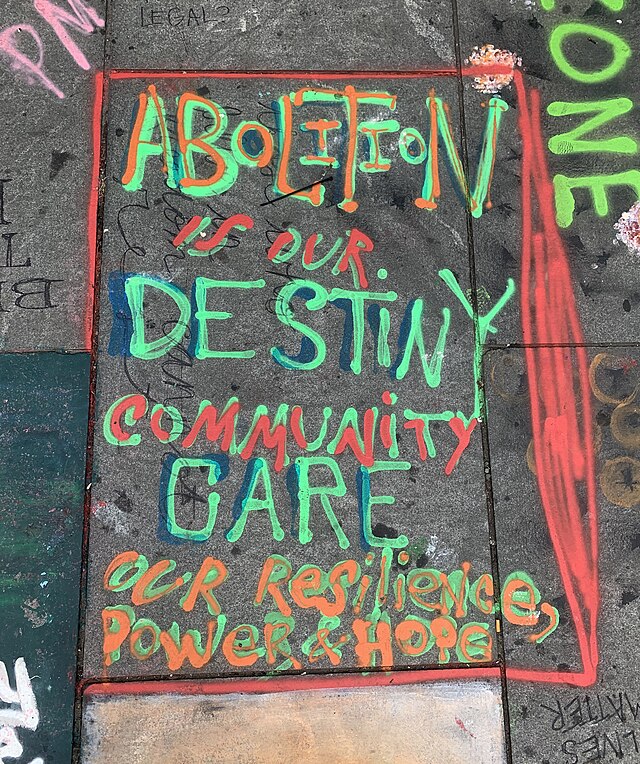 LEGAL?
PM
ONE
ABOLITION
IS OUR
DESTINY
COMMUNITY
CARE
OUR ResiLieNce,
POWER & HOPE
LIVES
MATTER